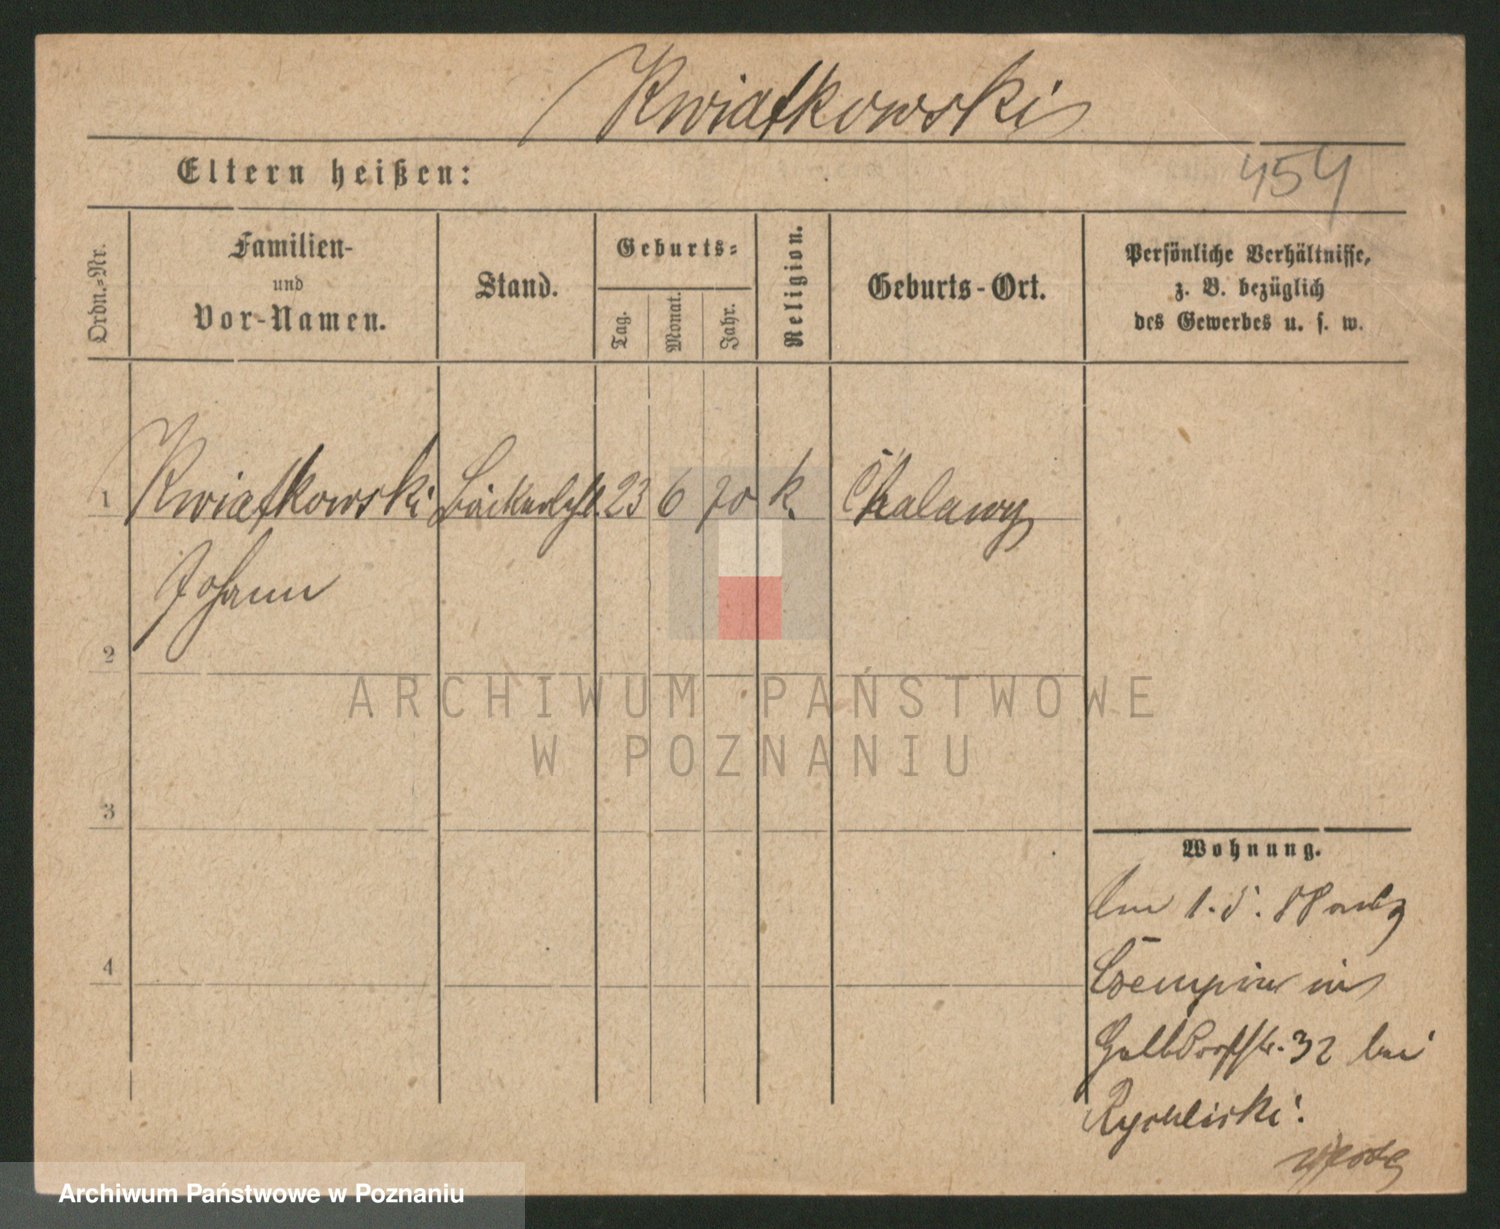 Kwiatkowski
454
Eltern heißen:
Ordn.=Nr.
Familien-
und
Vor-Namen.
Stand.
Geburts=
Tag.
Monat.
Jahr.
Religion.
Geburts-Ort.
Persönliche Verhältnisse,
z. B. bezüglich
des Gewerbes u. s. w.
1 Kwiatkowski Bäckerlehrl. 23 6 70 k. Chalawy
Johann
2
3
4
Wohnung.
Am 1. 5. 88 aus
Czempin in
Halbdorfstr. 32 bei
Rychlicki.
ARCHIWUM PAŃSTWOWE
W POZNANIU
Archiwum Państwowe w Poznaniu